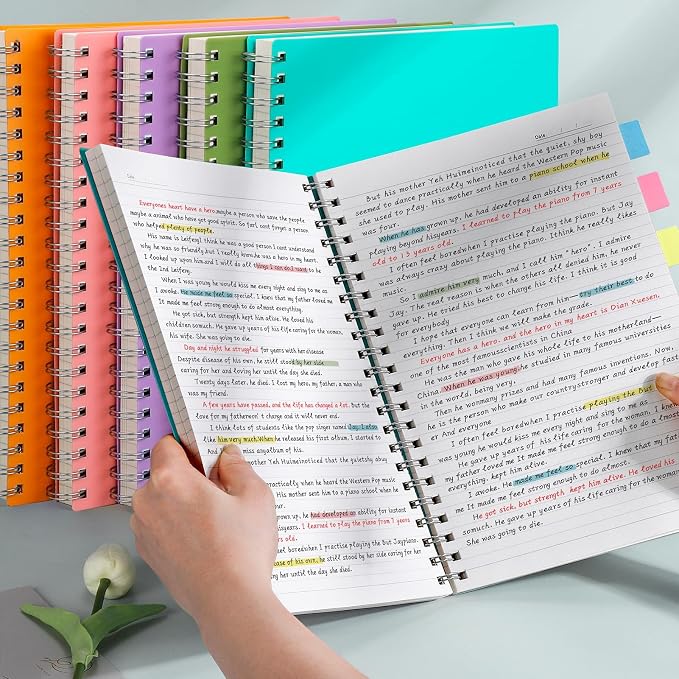 Everyones heart have a hero.maybe a person who save the people
maybe a animal who have got good spirit. So far,I cant forget a person
who helped plenty of people.
His name is Leifeng.I think he was a good person.I cant understand
why he was so friendly.And I really know.he was a hero in my heart.
I looked up upon him.and I will do all things I can do.I want to be
the 2nd Leifeng.
When I was young he would kiss me every night and sing to me as I
awoke. He made me feel so special. I knew that my father loved me
It made me feel strong enough to do almost everything.
He got sick, but strength kept him alive. He loved his
children somuch. He gave up years of his life caring for his
wife. She was going to die.
Day and night he struggled for years with her disease
Despite disease of his own, he still stood by her side
caring for her and loving her until the day she died.
Twenty days later, he died. I lost my hero, my father, a man who
was my friend.
A few years have passed, and the life has changed a lot. But the
love for my fathernon't change and it will never end.
I think lots of students like the pop singer named Jay. I also
like him very much.When he released his first album, I started to
And I miss anyalbum of his.
mother Yeh Huimeinoticed that the quietshy abuy
when he heard the Western Pop Music
His mother sent him to a piano school when he
grown up, he had developed an ability for instant
hisyears. I learned to play the piano from 7 years
years old.
feel boredwhen I practise playing the But Jaypiano
case of his own, he still stood by her side caring for her
her until the day she died.
Date / /
But his mother Yeh Huimeinoticed that the quiet, shy boy
seemed to dance practically when he heard the Western Pop music
she used to play. His mother sent him to a piano school when he
was four.
When he has grown up, he had developed an ability for instant
playing beyond hisyears. I learned to play the piano from 7 years
old to 13 years old.
I often feel boredwhen I practise playing the piano. But Jay
was always crazy about playing the piano. Ithink he really likes
music.
So I admire him very much, and I call him "hero". I admire
Jay. The real reason is when the others all denied him, he never
gave up. He tried his best to change his life. I think it is good
for everybody
I hope that everyone can learn from him—try their best to do
everything. Then I think we will make the grade.
Everyone has a hero. and the hero in my heart is Dian Xuesen.
one of the most famousscientists in China
He was the man who gave his whole life to his motherland—
China.When he was young,he studied in many famous universities
in the world, being very.
Then he wonmany prizes and had many famous inventions. Now,
he is the person who make our countrystronger and develop fast
er And everyone
I often feel boredwhen I practise playing the But
was young he would kiss me every night and sing to me as
He gave up years of his life caring for the woman.
my father loved me It made me feel strong enough to do almost
everything. kept him alive.
I awoke. He made me feel so special. I knew that my father
me It made me feel strong enough to do almost.
He got sick, but strength kept him alive. He loved his
somuch. He gave up years of his life caring for the woman
She was going to die.